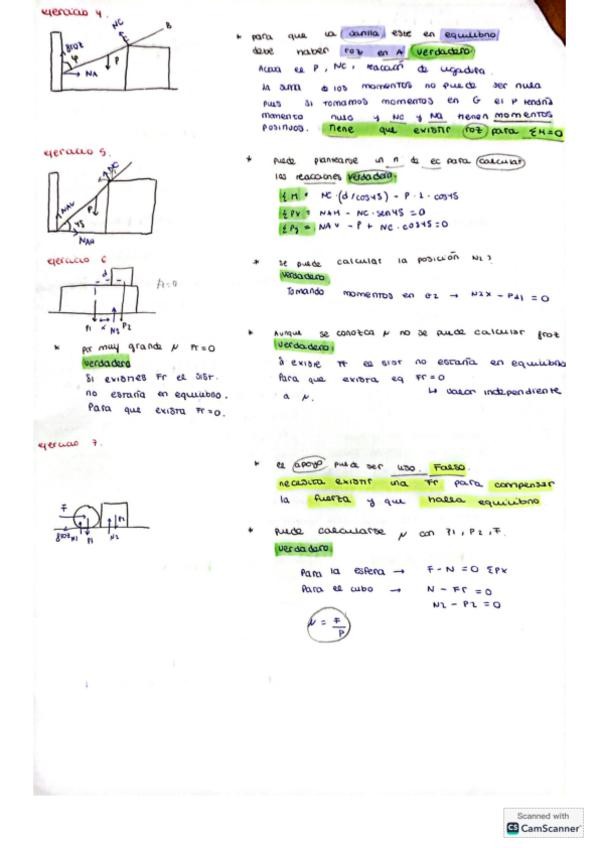 ejercicio 4.
* para que la varilla este en equilibrio
debe haber roz en A verdadero.
Actua el P, NC, reacción de ligadura.
la suma de los momentos no puede ser nula
pues si tomamos momentos en G el P tendria
momento nulo y NC y NA tienen momentos
positivos. tiene que existir roz para ΣM=0
B
NC
froz
φ
P
NA
ejercicio 5.
* puede plantearse un n de ec para calcular
las reacciones verdadero.
ΣM = NC·(d/cos45) - P·l·cos45
ΣPx = NAH - NC·sen45 = 0
ΣPy = NAV - P + NC·cos45 = 0
NC
NAV
P
45
NAH
ejercicio 6
* se puede calcular la posición N2?
verdadero
Tomando momentos en O2 → N2x - Pd1 = 0
d
P1 x N2 P2
* por muy grande μ Fr=0
verdadero
Si existies Fr el sist.
no estaria en equilibrio.
Para que exista Fr=0.
* Aunque se conozca μ no se puede calcular froz
verdadero.
si existe Fr el sist no estaria en equilibrio
Para que exista eq Fr=0
↳ valor independiente
a μ.
ejercicio 7.
* el apoyo puede ser liso. Falso.
necesita existir una Fr para compensar
la fuerza y que halla equilibrio
F
froz N1 P1 N2 P2
* puede calcularse μ con P1, P2, F.
verdadero.
Para la esfera → F-N=0 ΣPx
Para el cubo → N-Fr=0
N2-P2=0
μ = F/P
Scanned with
CS CamScanner